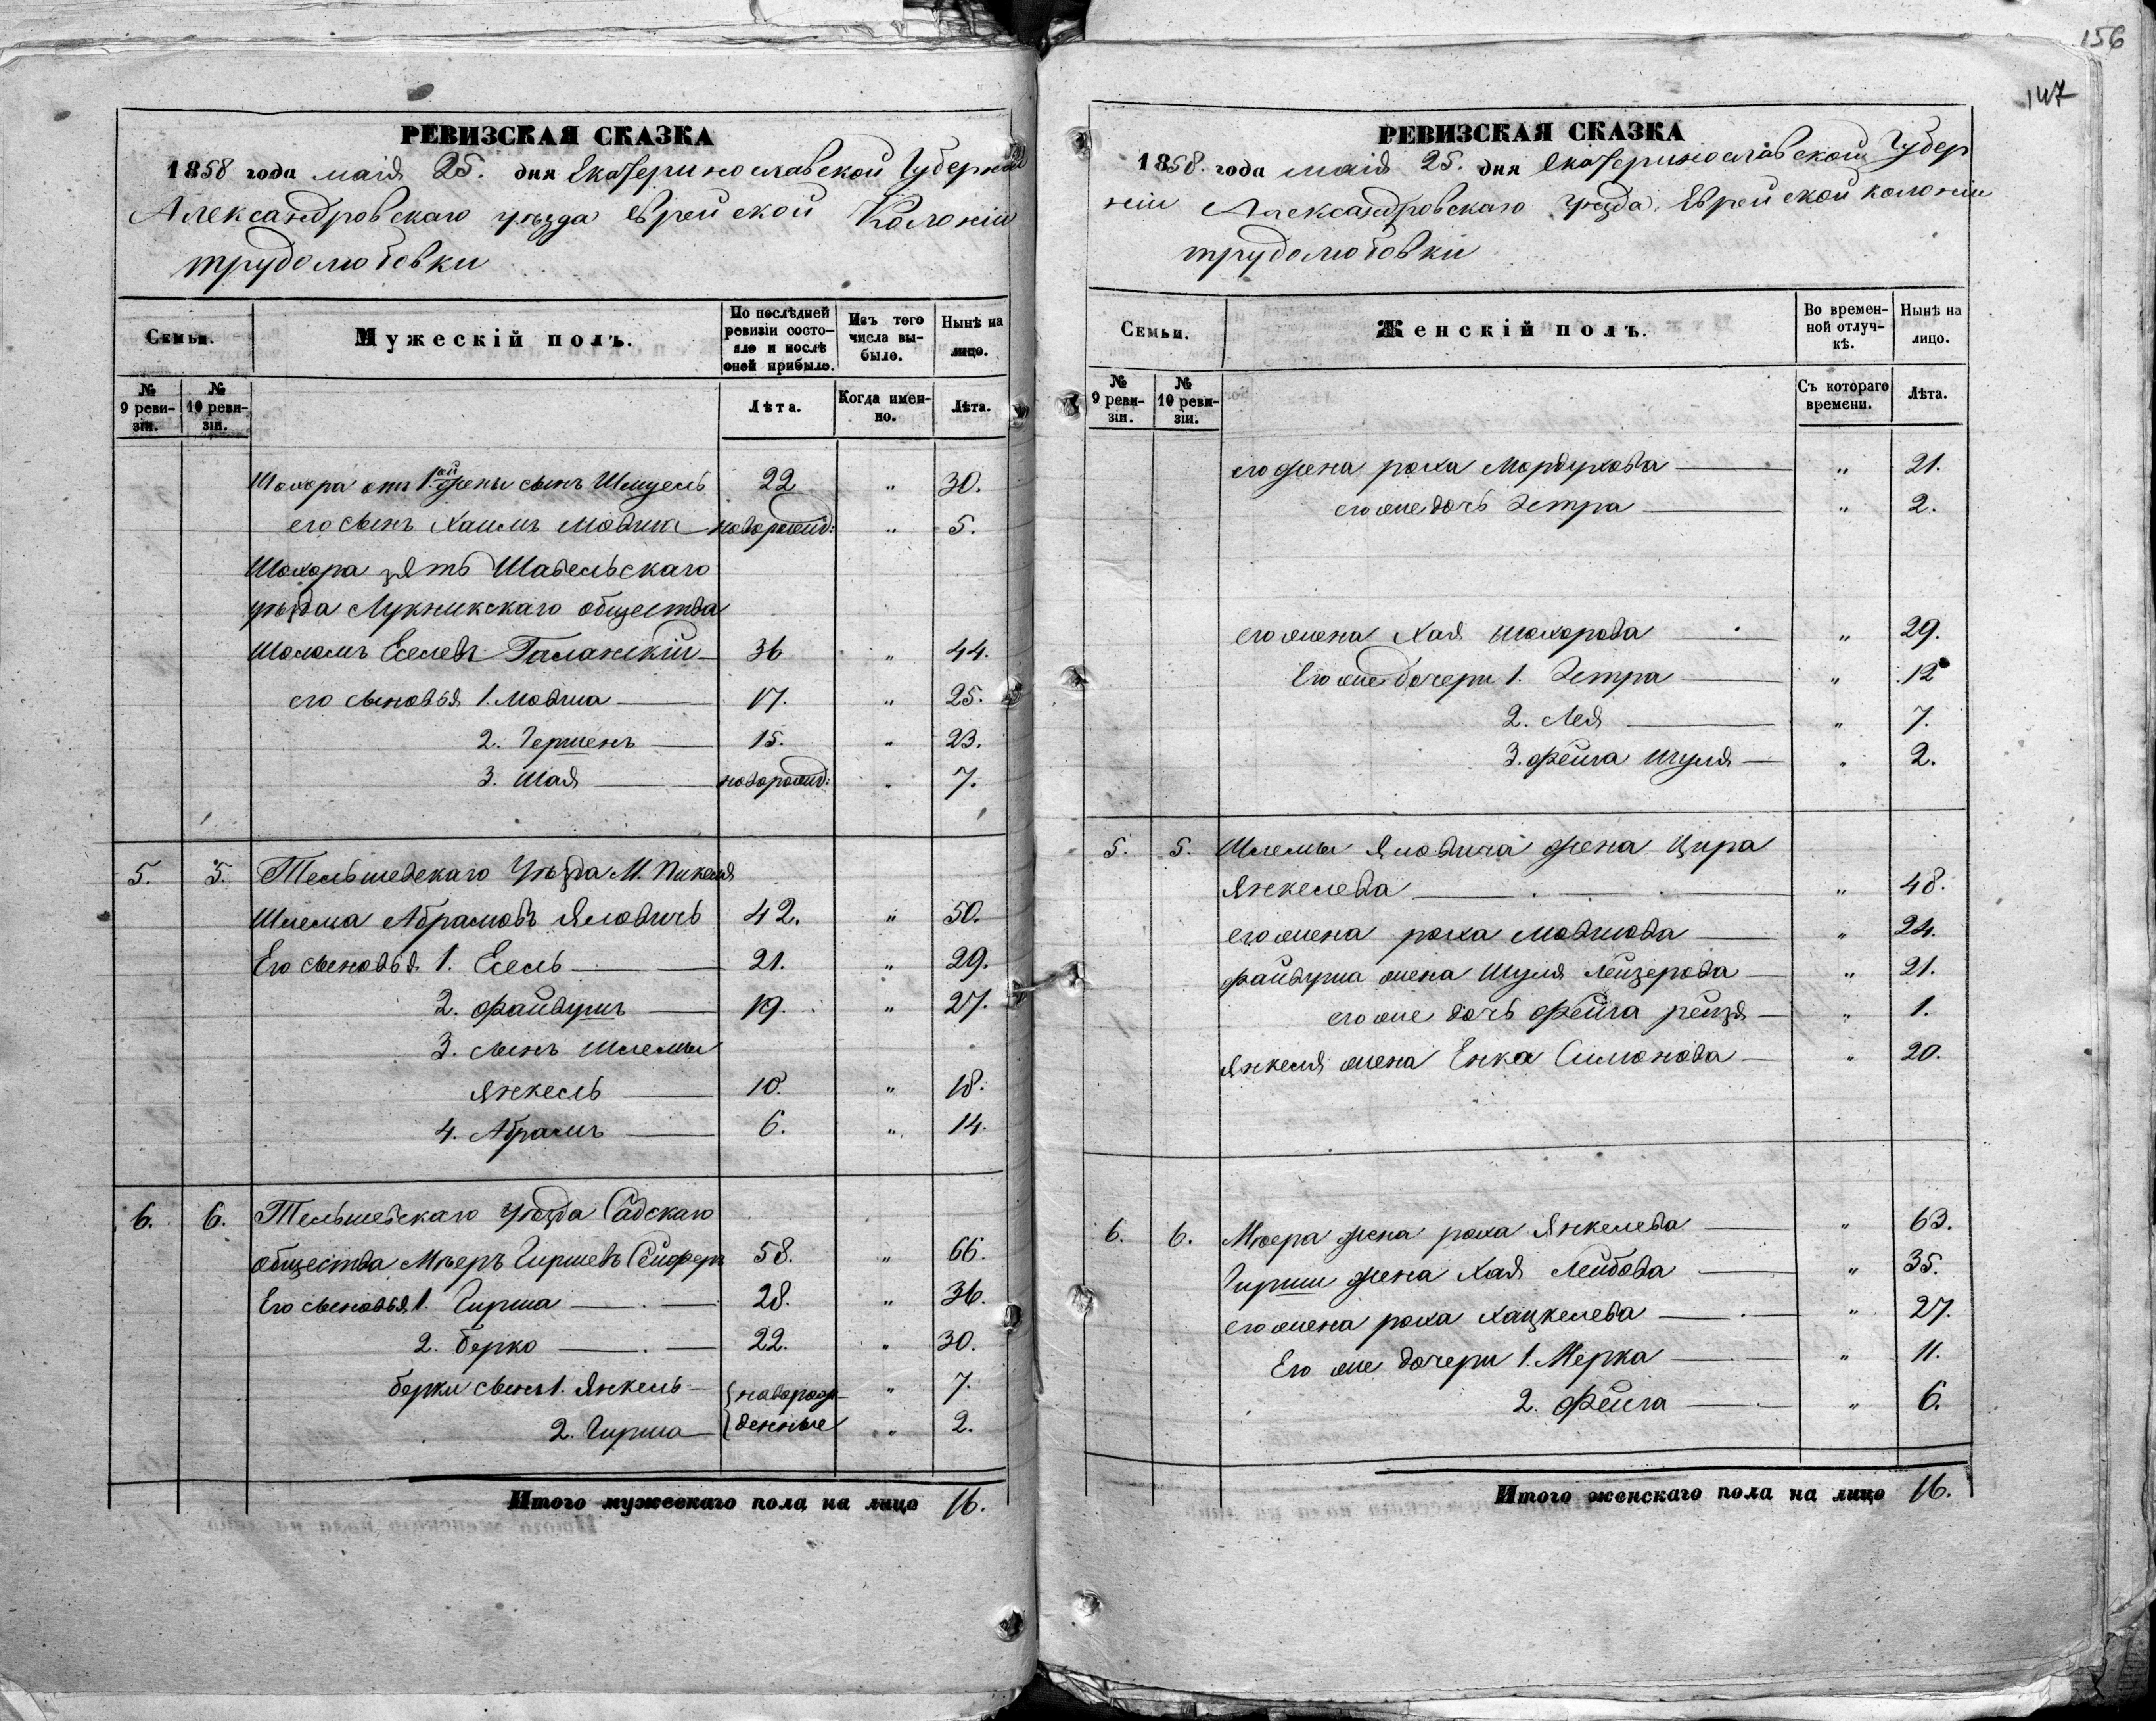 РЕВИЗСКАЯ СКАЗКА
1858 года маія 25. дня Екатеринославской Губерніи
Александровскаго уѣзда Еврейской Колоніи
трудолюбовки
Семьи.
Мужескій полъ.
По послѣдней ревизіи состояло и послѣ оной прибыло.
Изъ того числа выбыло.
Нынѣ на лицо.
№ 9 ревизіи.
№ 10 ревизіи.
Лѣта.
Когда именно.
Лѣта.
Шохора отъ 1ой жены сынъ Шмуель 22 " 30.
его сынъ Хаимъ Мовша новорожд: " 5.
Шохора зять Шавельскаго
уѣзда Лукникскаго общества
Шоломъ Еселевъ Галанскій 36 " 44.
его сыновья 1. Мовша 17. " 25.
2. Гершенъ 15. " 23.
3. Шая новорожд: " 7.
5. 5. Тельшевскаго Уѣзда М. Пикеля
Шлема Абрамовъ Яловичъ 42. " 50.
Его сыновья 1. Есель 21. " 29.
2. Файвушъ 19. " 27.
3. сынъ Шлемы
Янкель 10. " 18.
4. Абрамъ 6. " 14.
6. 6. Тельшевскаго Уѣзда Садскаго
общества Мѣеръ Гиршевъ 58. " 66.
Его сыновья 1. Гирша 28. " 36.
2. Берко 22. " 30.
Берки сынъ 1. Янкель { новорож- " 7.
2. Гирша { денные " 2.
Итого мужескаго пола на лицо 16.
156
147
РЕВИЗСКАЯ СКАЗКА
1858. года маія 25. дня Екатеринославской Губер
ніи Александровскаго Уѣзда. Еврейской колоніи
трудолюбовки
Семьи.
Женскій полъ.
Во временной отлучкѣ.
Нынѣ на лицо.
№ 9 ревизіи.
№ 10 ревизіи.
Съ котораго времени.
Лѣта.
его жена роха Мордухова " 21.
его же дочь Этра " 2.
его жена Хая шохорова " 29.
Его же дочери 1. Этра " 12
2. Лея " 7.
3. Фейга Шуля " 2.
5. 5. Шлемы Яловича жена Цира
Янкелева " 48.
его жена роха Мовшова " 24.
Файвуша жена Шуля Лейзерова " 21.
его же дочь Фейга рейзя " 1.
Янкеля жена Енка Симонова " 20.
6. 6. Мѣера жена роха Янкелева " 63.
Гирши жена Хая Лейбова " 35.
его жена роха Хацкелева " 27.
Его же дочери 1. Мерка " 11.
2. Фейга " 6.
Итого женскаго пола на лицо 16.